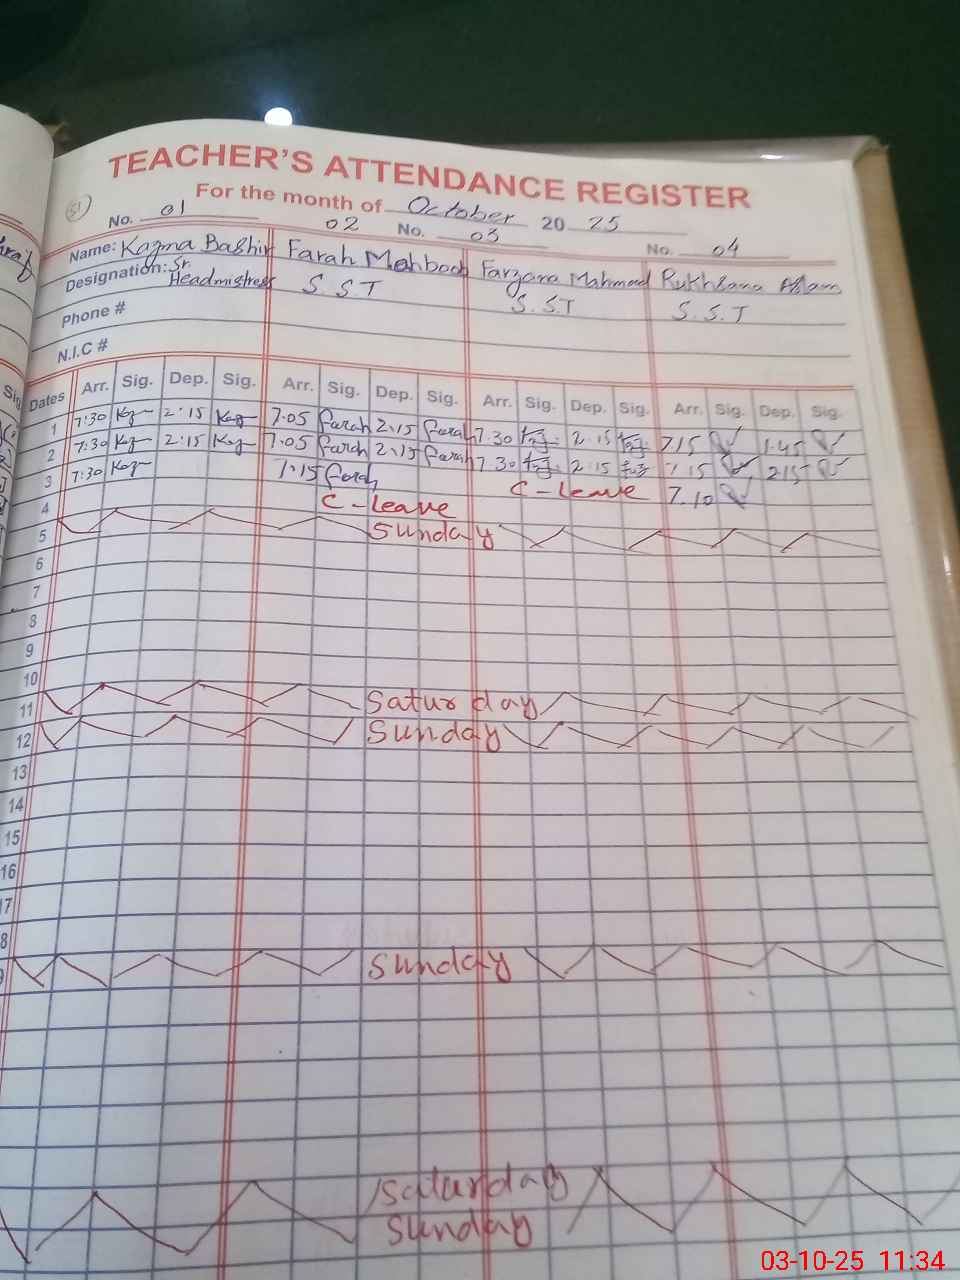 TEACHER'S ATTENDANCE REGISTER
For the month of October 20 25
51
No. 01 02 No. 03 No. 04
Name: Kazma Bashir Farah Mahboob Farzana Mahmood Rukhsana Aslam
Designation: Sr. Headmistress S.S.T S.S.T S.S.T
Phone #
N.I.C #
Dates Arr. Sig. Dep. Sig. Arr. Sig. Dep. Sig. Arr. Sig. Dep. Sig. Arr. Sig. Dep. Sig.
1 7:30 2:15 7.05 Farah 2.15 Farah 7.30 2.15 7.15 1.45
2 7:30 2:15 7.05 Farah 2.15 Farah 7.30 2.15 7.15 2.15
3 7:30 7.15 Farah C-Leave 7.10
4 C-Leave
5 Sunday
6
7
8
9
10
11 Saturday
12 Sunday
13
14
15
16
17
8
9 Sunday
Saturday
Sunday
03-10-25 11:34